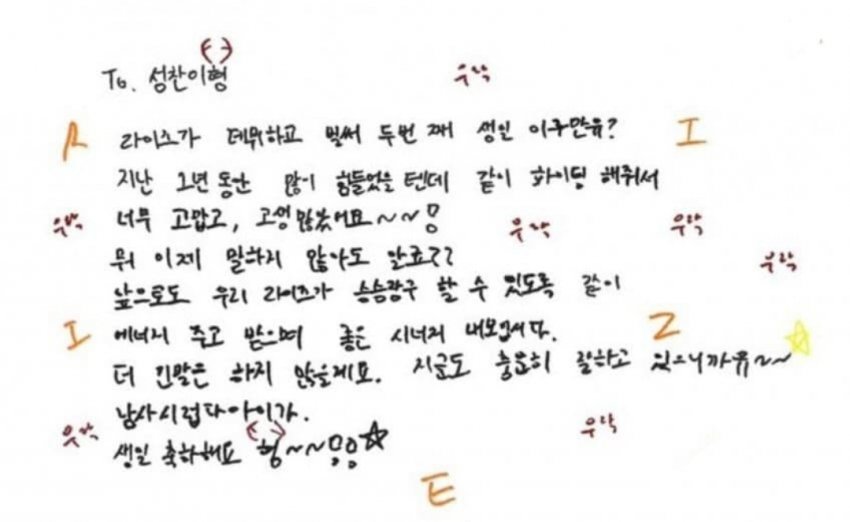 To. 성찬이형
우락
R 라이즈가 데뷔하고 벌써 두번 째 생일 이구만유? I
지난 1년 동안 많이 힘들었을 텐데 같이 화이팅 해줘서
우락 너무 고맙고, 고생 많았어요~~! 우락 우락
뭐 이제 말하지 않아도 알죠?? 우락
앞으로도 우리 라이즈가 승승장구 할 수 있도록 같이
I 에너지 주고 받으며 좋은 시너지 내봅시다. Z
더 긴말은 하지 않을게요. 지금도 충분히 잘하고 있으니까유~~
남사시럽다아이가.
우락 생일 축하해요 형~~!!☆ 우락
E